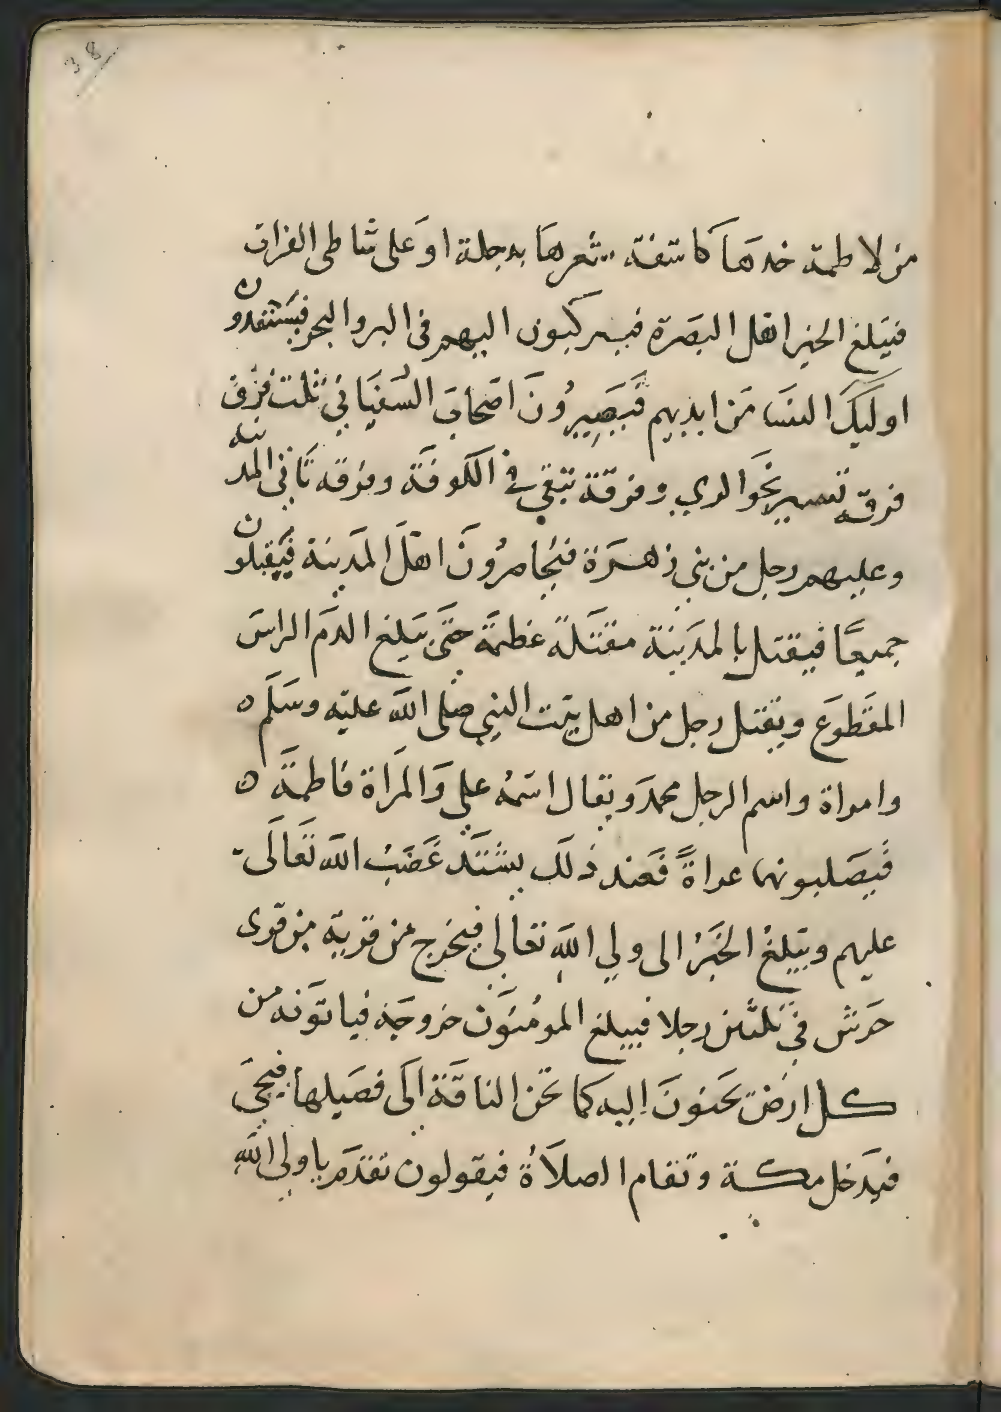 38
من لاطمة خدها كاشفة شعرها بدجلة او على شاطى الفرات
فيبلغ الخبر اهل البصرة فيركبون اليهم فى البر والبحر فيستنقذون
اوليك النسا من ايديهم فيصيرون اصحاب السفيانى ثلث فرق
فرقة تسير نحو الري وفرقة تبقى في الكوفة وفرقة تاتى المدينة
وعليهم رجل من بني زهرة فيحاصرون اهل المدينة فيقبلون
جميعا فيقتل بالمدينة مقتلة عظمة حتى يبلغ الدم الراس
المقطوع ويقتل رجل من اهل بيت النبي صلى الله عليه وسلم ه
وامراة واسم الرجل محمد ويقال اسمه على والمراة فاطمة ه
فيصلبونهما عراة فعند ذلك يشتد غضب الله تعالى
عليهم ويبلغ الخبر الى ولي الله تعالى فيخرج من قرية من قرى
حرش في ثلثين رجلا فيبلغ المومنون خروجه فياتونه من
كل ارض يحنون اليه كما تحن الناقة الى فصيلها فيجى
فيدخل مكة وتقام الصلاة فيقولون تقدم يا ولي الله